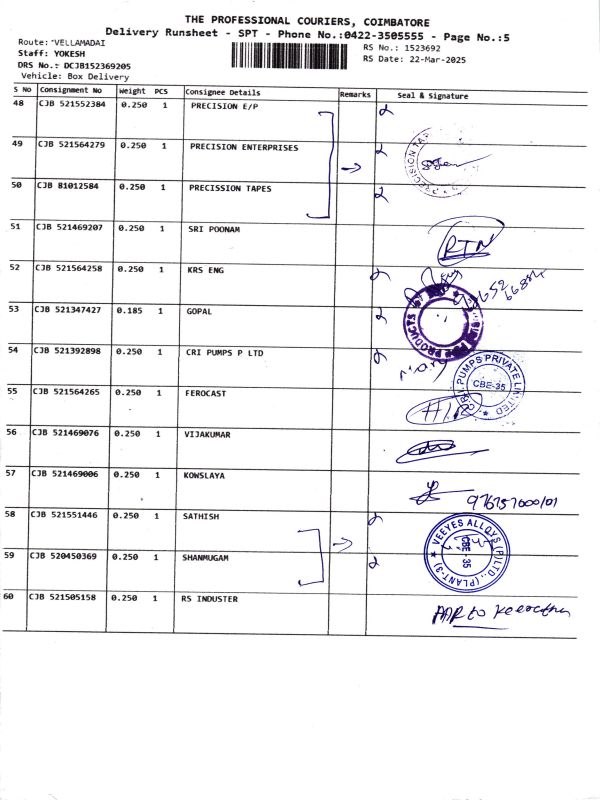 THE PROFESSIONAL COURIERS, COIMBATORE
Delivery Runsheet - SPT - Phone No.:0422-3505555 - Page No.:5
Route: VELLAMADAI
Staff: YOKESH
DRS No.: DCJB152369205
Vehicle: Box Delivery
RS No.: 1523692
RS Date: 22-Mar-2025
S No Consignment No Weight PCS Consignee Details Remarks Seal & Signature
48 CJB 521552384 0.250 1 PRECISION E/P
49 CJB 521564279 0.250 1 PRECISION ENTERPRISES
PRECISION TAP
50 CJB 81012584 0.250 1 PRECISSION TAPES
51 CJB 521469207 0.250 1 SRI POONAM
52 CJB 521564258 0.250 1 KRS ENG
53 CJB 521347427 0.185 1 GOPAL
PRODUCTS
54 CJB 521392898 0.250 1 CRI PUMPS P LTD
C.R.I. PUMPS PRIVATE LIMITED
CBE-35
55 CJB 521564265 0.250 1 FEROCAST
56 CJB 521469076 0.250 1 VIJAKUMAR
57 CJB 521469006 0.250 1 KOWSLAYA
58 CJB 521551446 0.250 1 SATHISH
VEEYES ALLOYS (P) LTD., (PLANT-3)
CBE 35
59 CJB 520450369 0.250 1 SHANMUGAM
60 CJB 521505158 0.250 1 RS INDUSTER